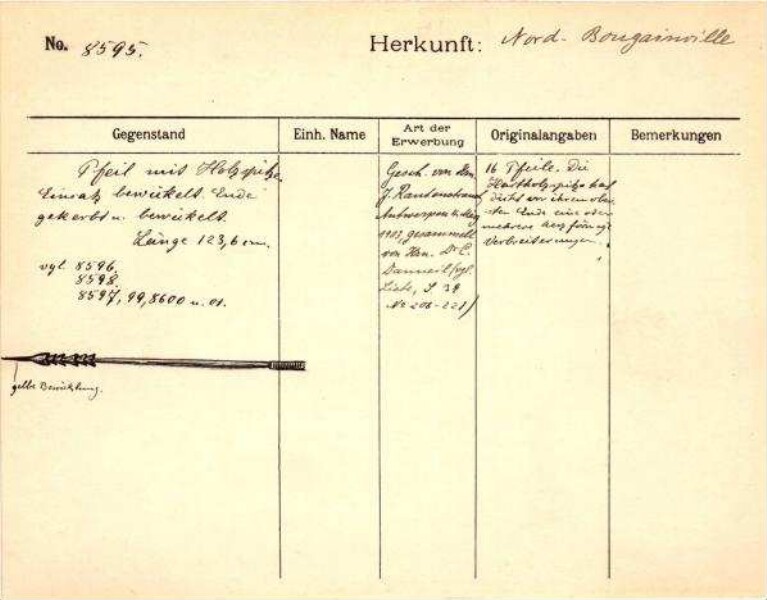 No. 8595.
Herkunft: Nord-Bougainville
Gegenstand
Einh. Name
Art der Erwerbung
Originalangaben
Bemerkungen
Pfeil mit Holzspitze
Einsatz bewickelt. Ende
gekerbt u. bewickelt.
Länge 123,6 cm.
vgl. 8596.
8598.
8597, 99, 8600 u. 01.
gelbe Bewicklung.
Gesch. von Hrn.
J.
Antwerpen
1907, gesammelt
von Hrn. Dr. C.
Danneil (vgl.
Liste, S 39
No 208-223)
16 Pfeile. Die
Hartholzspitze hat
dicht vor ihrem ober-
sten Ende eine oder
mehrere herzförmige
Verbreiterungen.